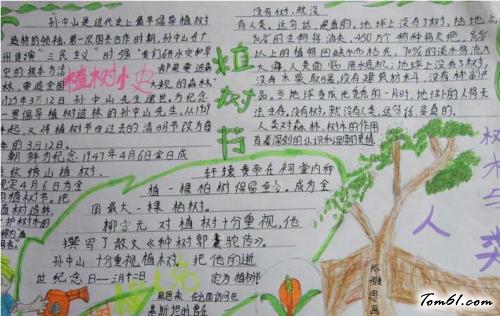 孙中山是近代史上最早倡导植树
造林的领袖。第一次国共合作时期,孙中山在广
州演讲"三民主义"时强调"我们研水灾和旱
灾的根本方法都是要造森
林,要造全国大规模的森林。"
1925年3月12日孙中山先生逝世,为纪念
一贯倡导植树造林的孙中山先生,从191
起,又将植树节由过去的清明节改为
年的3月12日。
朝鲜为纪念1947年4月6日金日成
植树,
定4月6日为全
植树节。把
植树小史
植树行
没有树,就没
有人类,这句话,是真的。地球上没有了树,陆地上
90%的生物将消失,450万个物种将灭绝,
以上的植物因缺水而枯死,70%的淡水将流入
大海,人类面临用水危机,地球上没有了树,
没有木柴取暖,没有建筑材料,没有林副产
品。当地球变成光秃秃的一片时,地球上的人倘无
法生存。没有树,就没有人类,这句话,是真的。
人类对森林、树木的作用
有着深刻的认识和深厚的感情
轩辕黄帝在祠堂内种
植一棵柏树保留至今。成为全
国最大一棵柏树。
柳宗元对植树十分重视,他
撰写了散文《种树郭橐驼传》。
孙中山十分重视植树,把他的逝
世纪念日—三月十二日定为植树节
周恩来
树与人类
Tom61.com